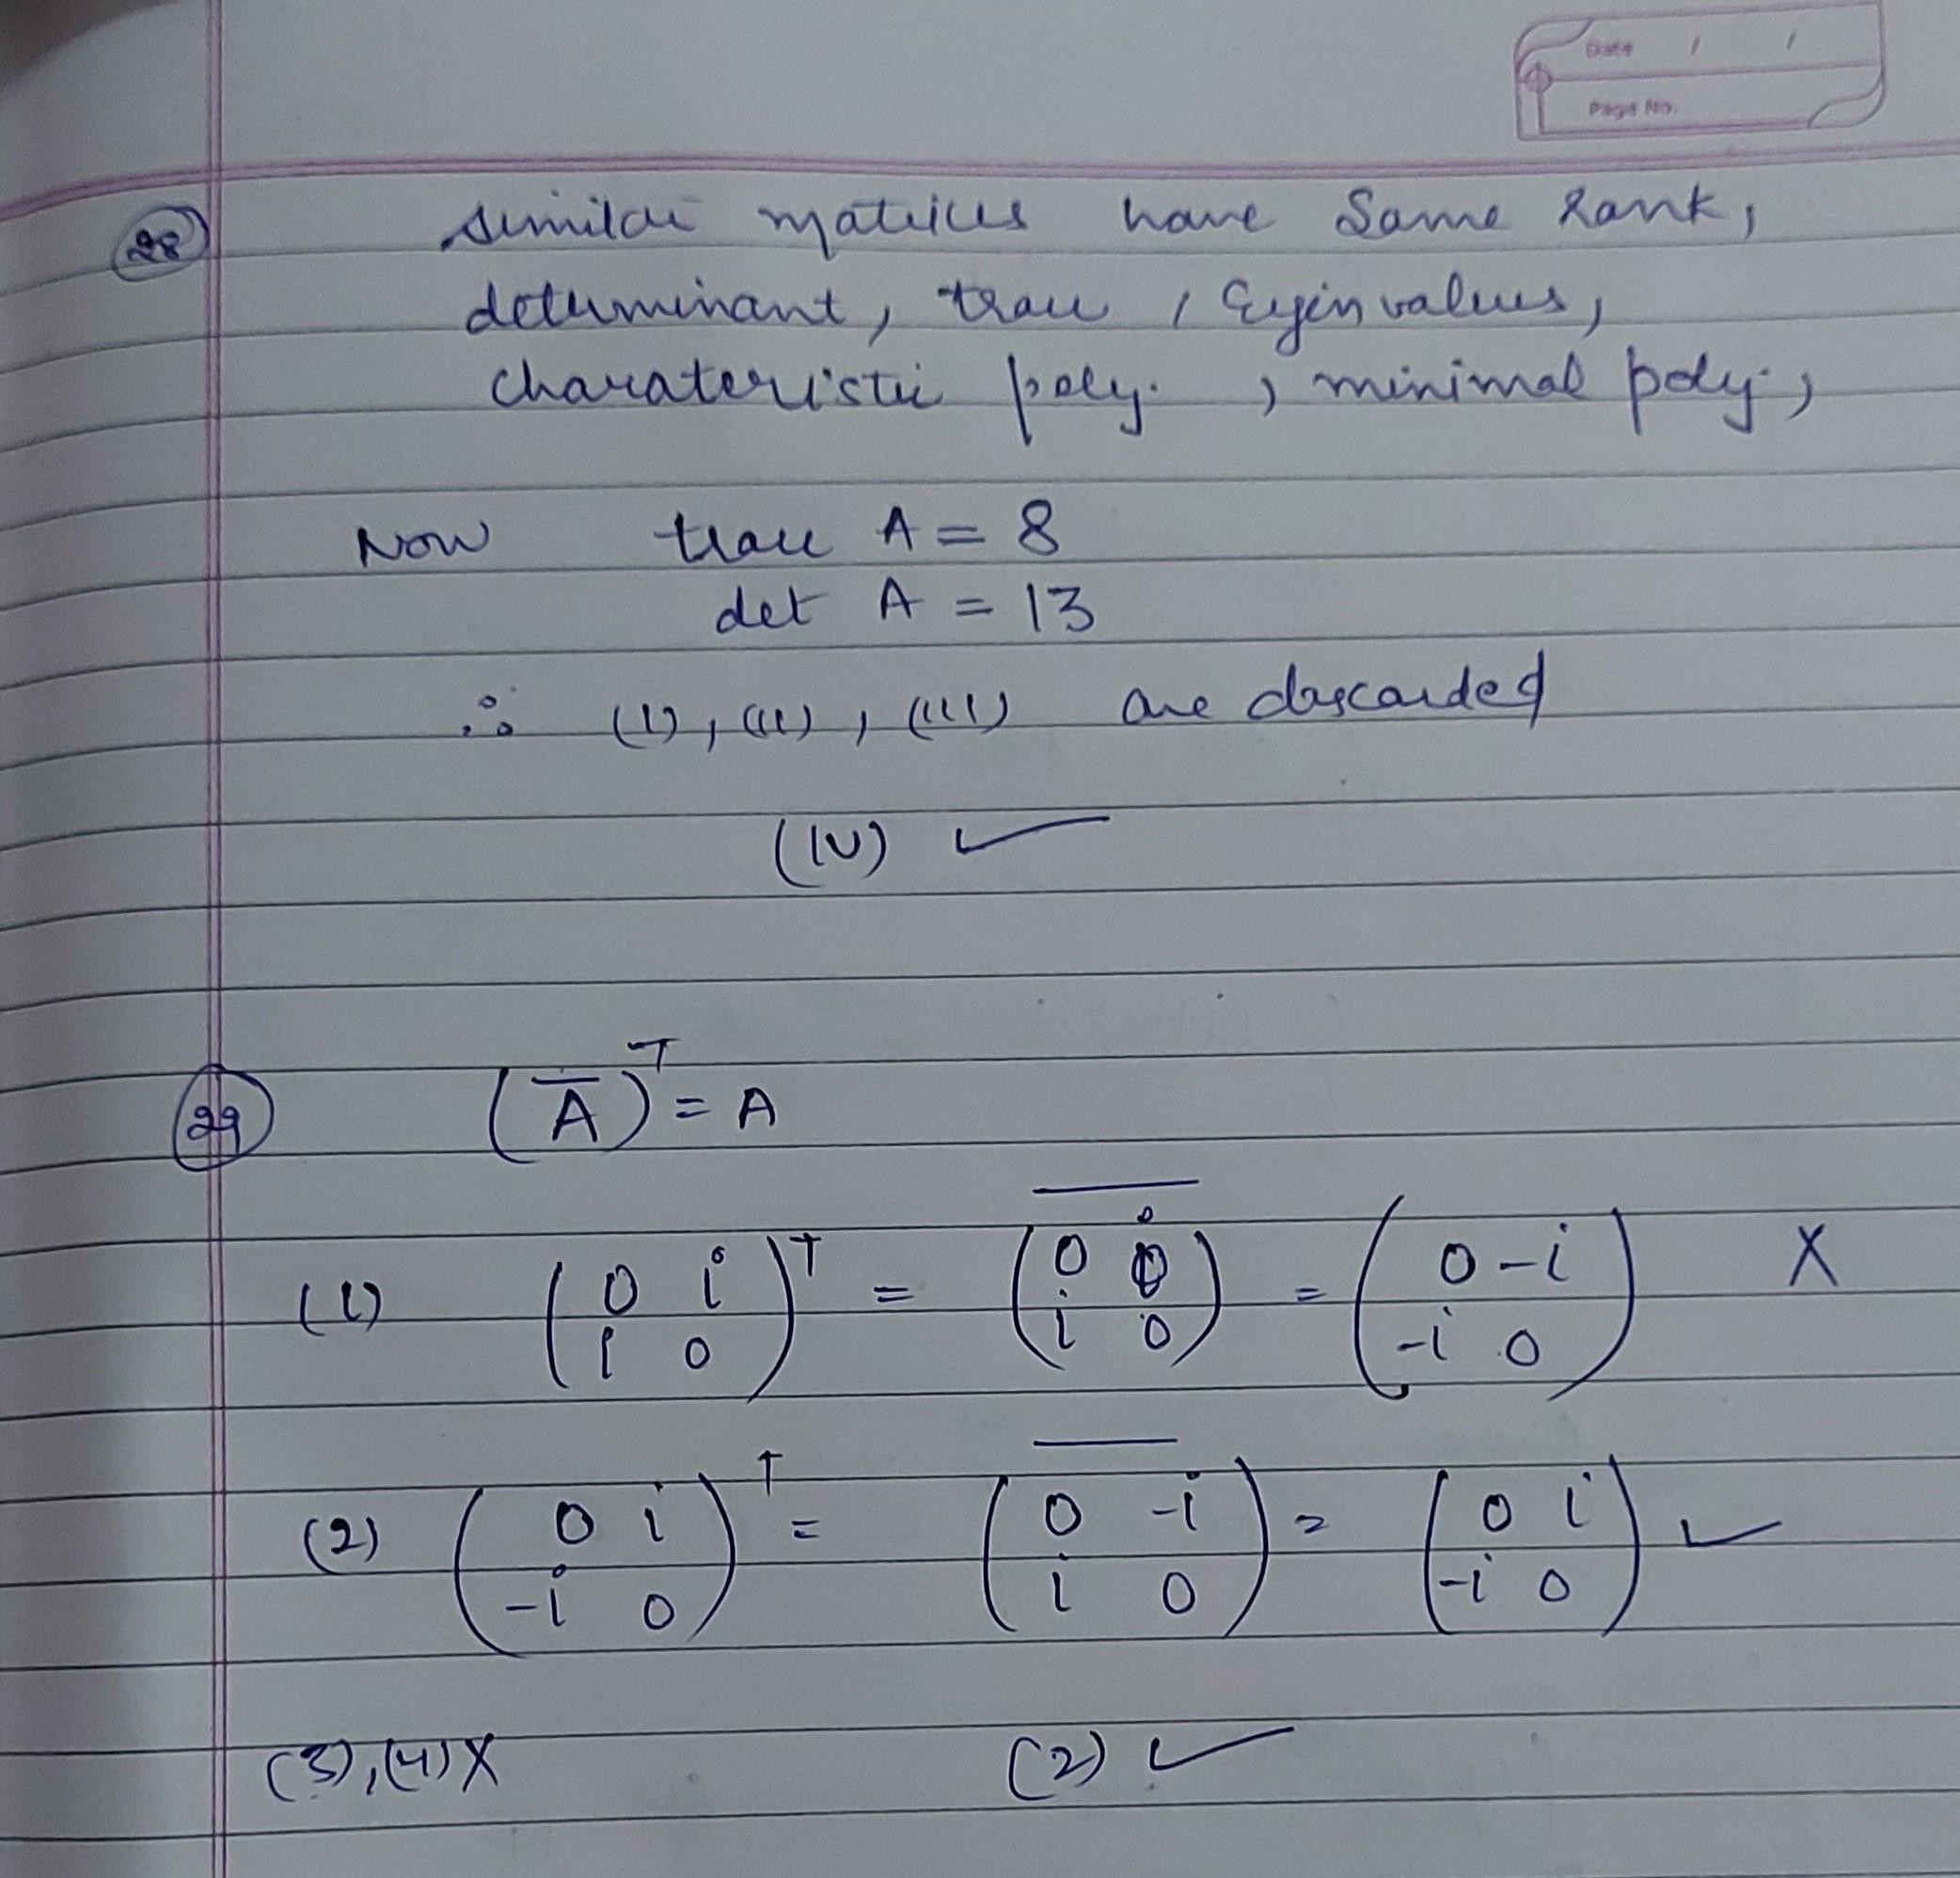 Date / /
Page No.
(28) similar matrices have Same Rank,
determinant, trace, Eigen values,
charateristic poly. , minimal poly.,
Now trace A = 8
det A = 13
∴ (I), (II), (III) are discarded
(IV) ✓
(29) (A̅)ᵀ = A
(1) (0 i; i 0)ᵀ = \overline{(0 i; i 0)} = (0 -i; -i 0) X
(2) (0 i; -i 0)ᵀ = \overline{(0 -i; i 0)} = (0 i; -i 0) ✓
(3), (4) X (2) ✓